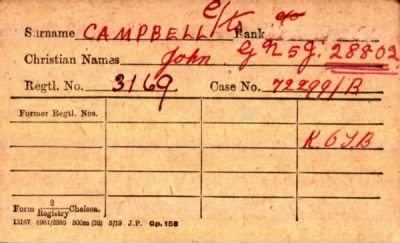 Surname CAMPBELL Rank
Christian Names John G N 5 J. 28802
Regtl. No. 3169 Case No. 72299/B
Former Regtl. Nos.
K 6 J B
Form 2/Registry Chelsea.
13167 6961/2380 500m (32) 5/19 J.P. Gp. 156